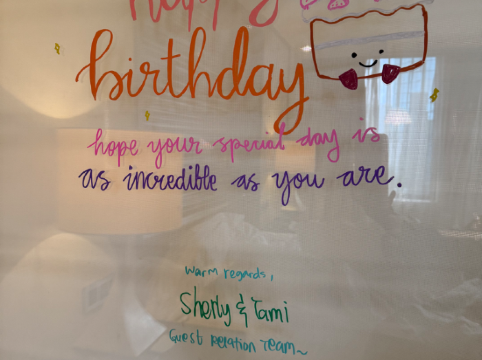 happy
birthday
hope your special day is
as incredible as you are.
warm regards,
Sherly & Tami
Guest Relation Team~